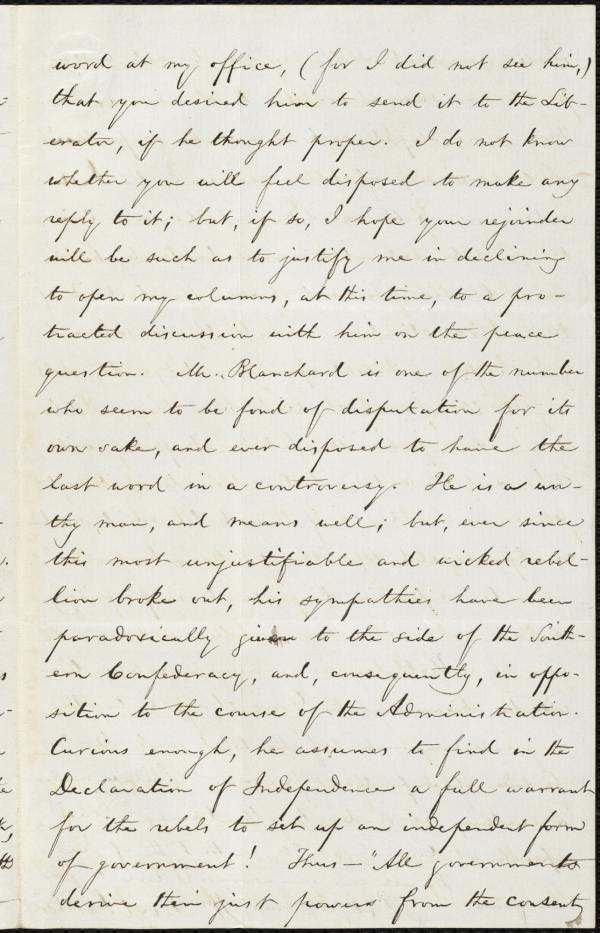 word at my office, (for I did not see him,)
that you desired him to send it to the Lib-
erator, if he thought proper. I do not know
whether you will feel disposed to make any
reply to it; but, if so, I hope your rejoinder
will be such as to justify me in declining
to open my columns, at this time, to a pro-
tracted discussion with him on the peace
question. Mr. Blanchard is one of the number
who seem to be fond of disputation for its
own sake, and ever disposed to have the
last word in a controversy. He is a wor-
thy man, and means well; but, ever since
this most unjustifiable and wicked rebel-
lion broke out, his sympathies have been
paradoxically given to the side of the South-
ern Confederacy, and, consequently, in oppo-
sition to the course of the Administration.
Curious enough, he assumes to find in the
Declaration of Independence a full warrant
for the rebels to set up an independent form
of government! Thus—"All governments
derive their just powers from the consent